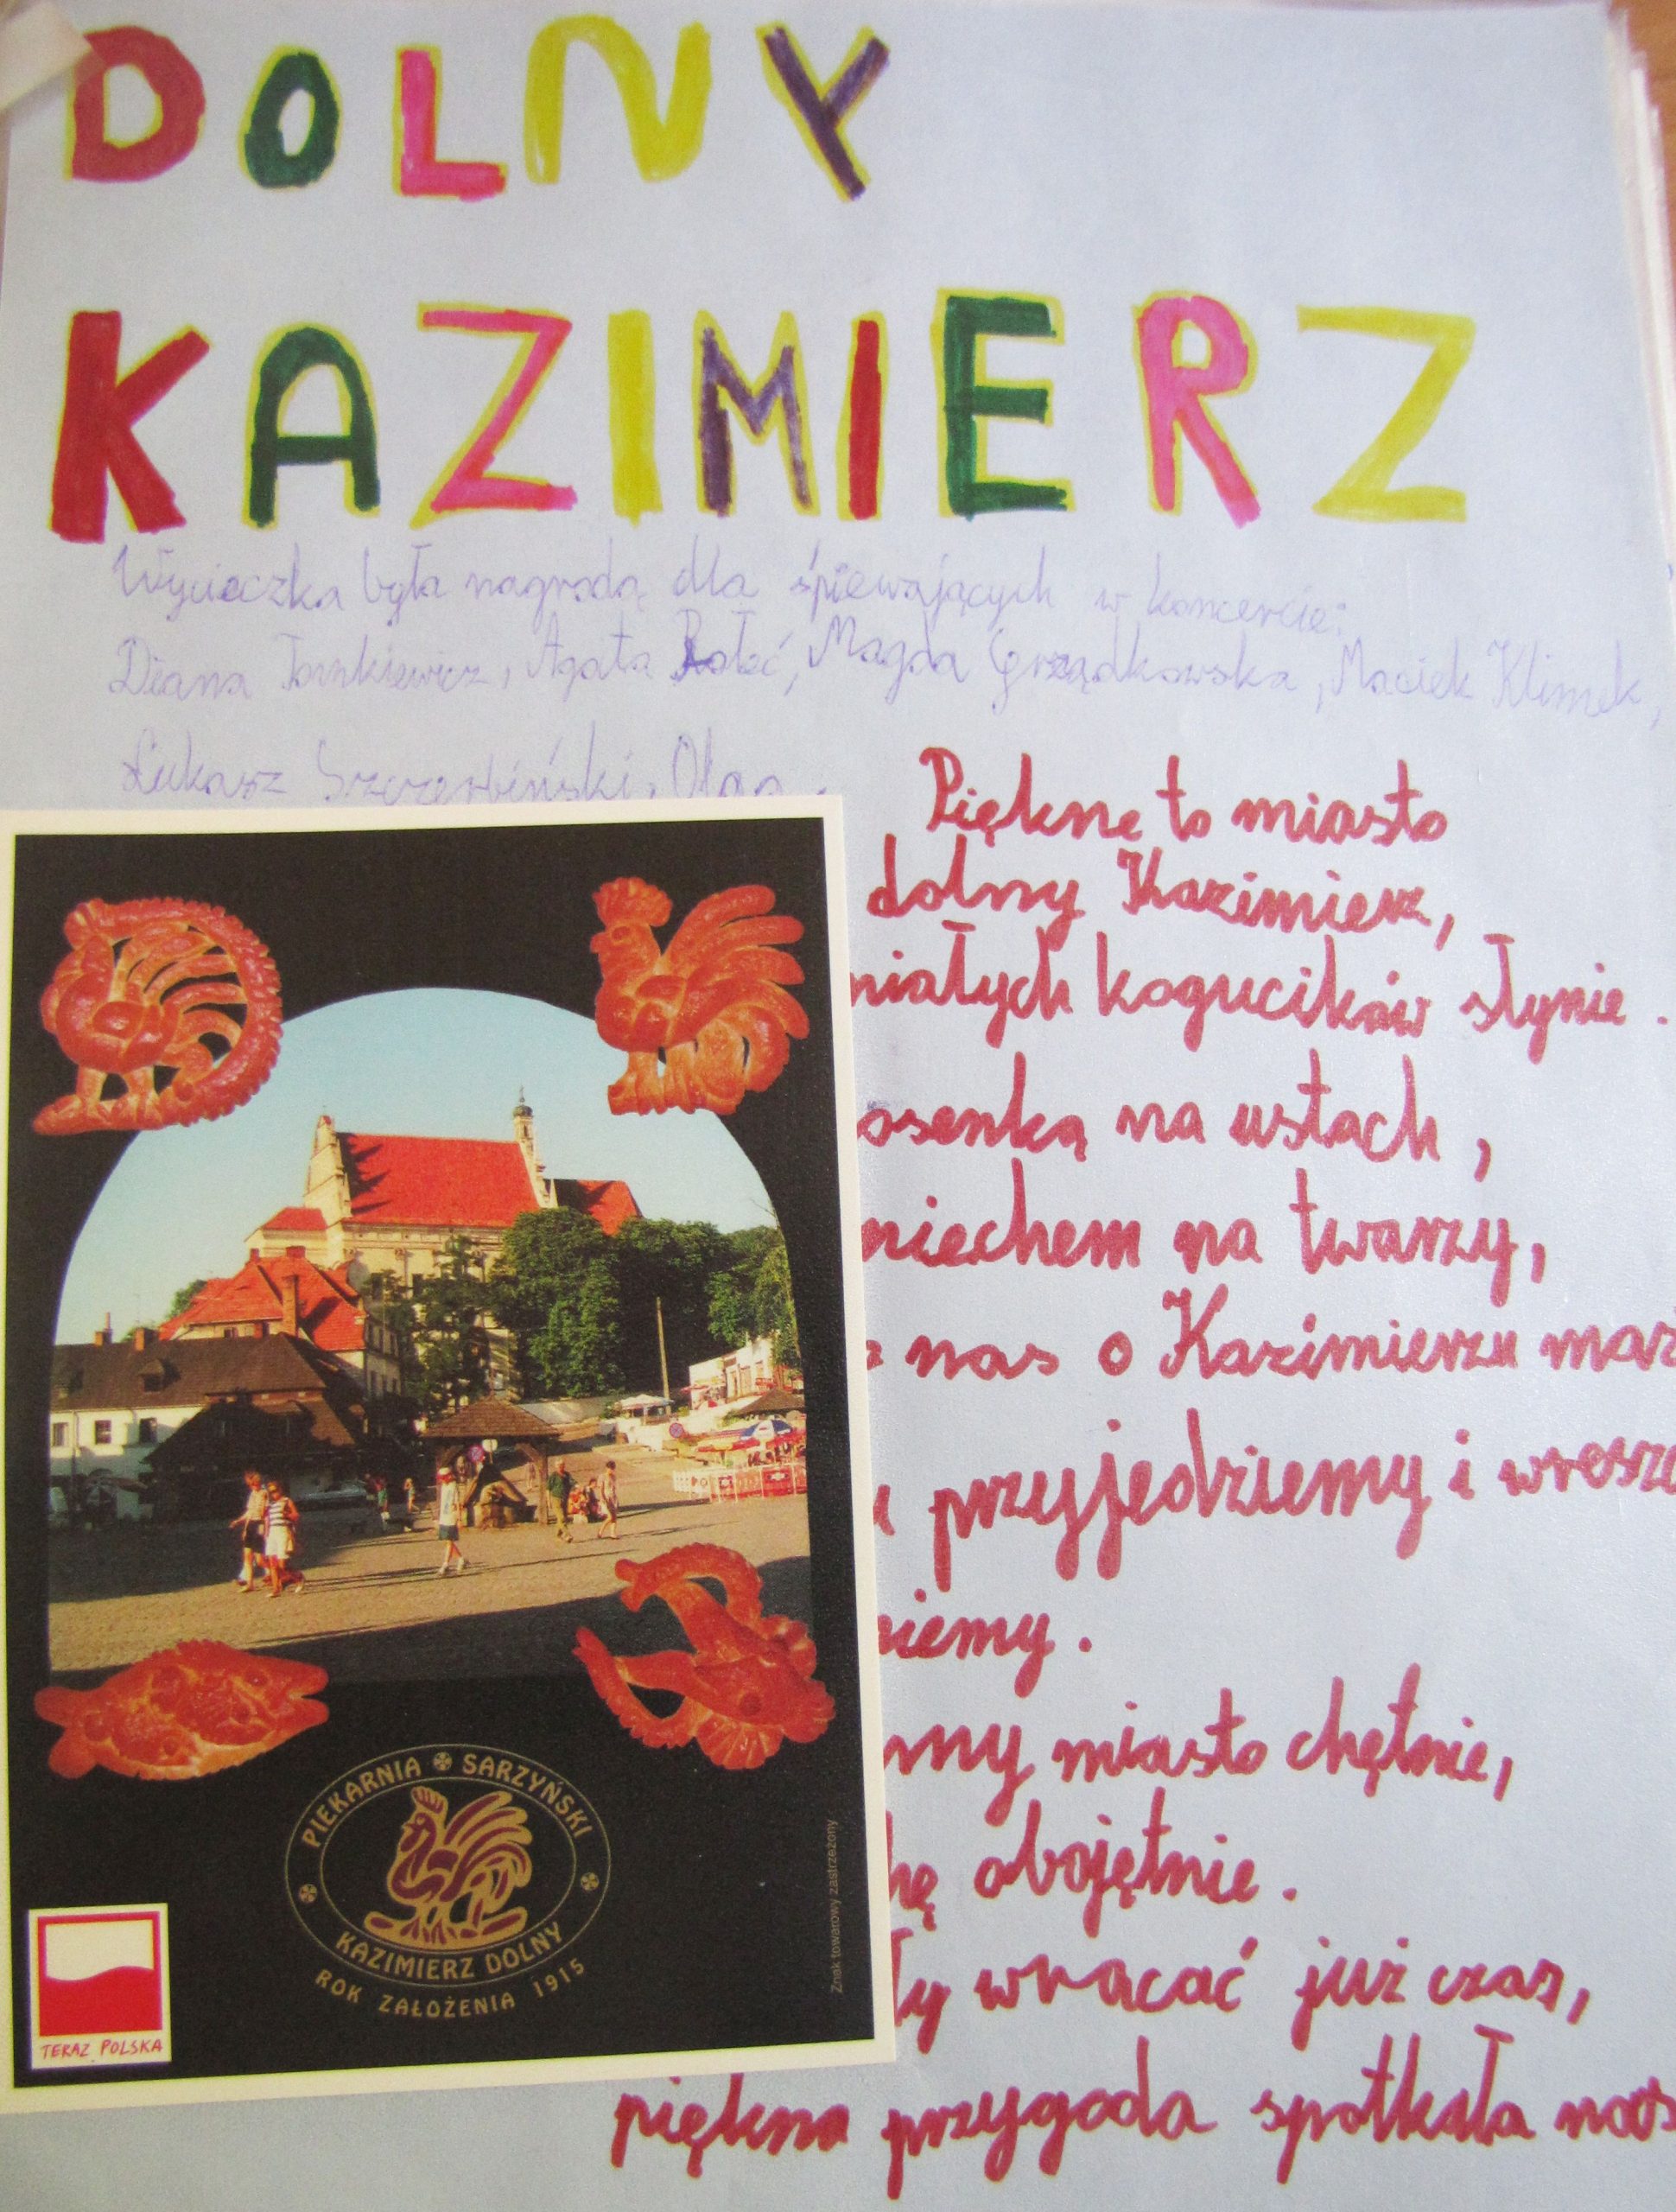 DOLNY
KAZIMIERZ
Wycieczka była nagrodą dla śpiewających w koncercie:
Diana , Agata , Magda Grządkowska, Maciek Klimek,
Łukasz Szczerbiński, Olga
Piękne to miasto
dolny Kazimierz,
kogucików słynie.
na ustach,
na twarzy,
nas o Kazimierzu
przyjedziemy i
miasto chętnie,
obojętnie.
wracać już czas,
piękna przygoda spotkała nas
PIEKARNIA SARZYŃSKI
KAZIMIERZ DOLNY
ROK ZAŁOŻENIA 1915
Znak towarowy zastrzeżony
TERAZ POLSKA